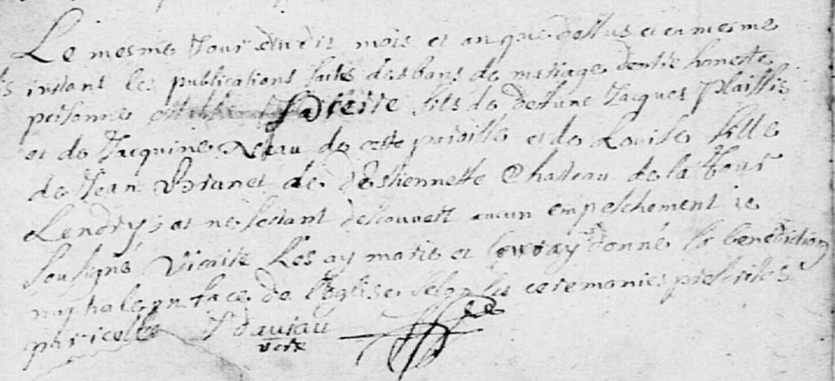 Le mesme Jour dudit mois et an que dessus et en mesme
instant les publications faites des bans de mariage d'entre honeste
personne Pierre fils de defunt Jaques Plaissis
et de Jacquine de cette paroisse et de Louise fille
de Jean Brunet et de Estiennette Chasteau de la Tour
Lendry, et ne sestant descouvert aucun empeschement ie
soubigné vicaire les ay marié et leur ay donné la benediction
nuptiale en face de l'Eglise selon les ceremonies prescrites
par icelle J Daviau
vere